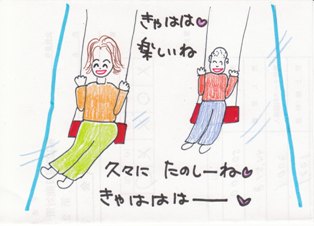 きゃはは♥
楽しいね
久々に たのしーね♥
きゃははは——♥